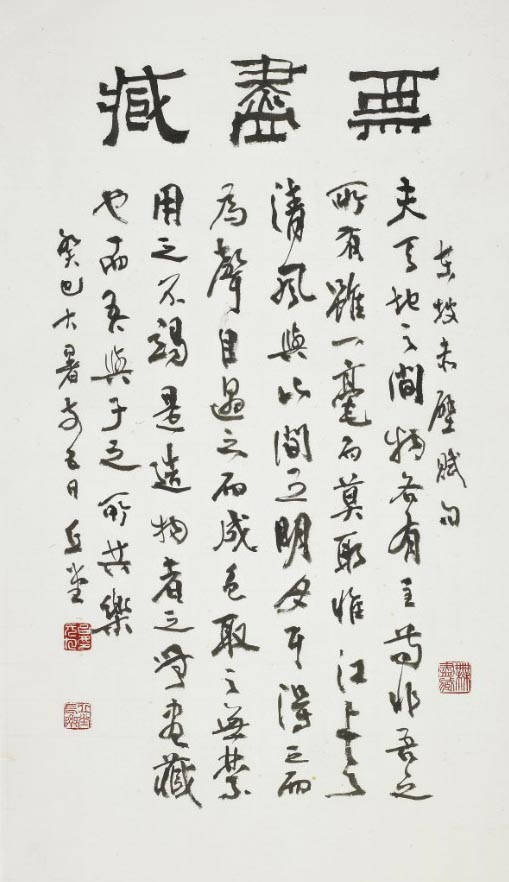 無盡臧
東坡赤壁賦句
夫天地之間物各有主苟非吾之
所有雖一毫而莫取惟江上之
清風與山間之明月耳得之而
為聲目遇之而成色取之無禁
用之不竭是造物者之無盡藏
也而吾與子之所共樂
癸巳大暑前五日丘堂